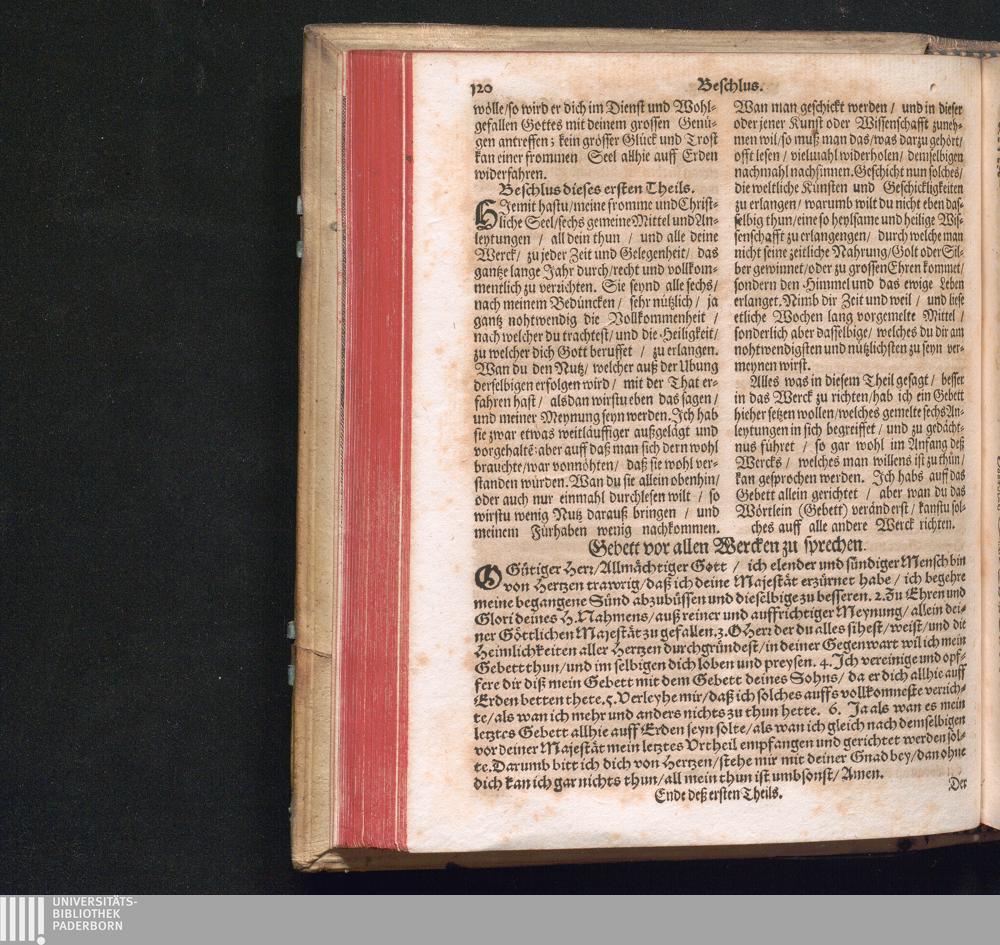 120
Beschlus.
wölle/so wird er dich im Dienst und Wohl-
gefallen Gottes mit deinem grossen Genü-
gen antreffen; kein grösser Glück und Trost
kan einer frommen Seel allhie auff Erden
widerfahren.
Beschlus dieses ersten Theils.
HJemit hastu/meine fromme und Christ-
liche Seel/sechs gemeine Mittel und An-
leytungen / all dein thun / und alle deine
Werck/ zu jeder Zeit und Gelegenheit/ das
gantze lange Jahr durch/recht und vollkom-
mentlich zu verrichten. Sie seynd alle sechs/
nach meinem Bedüncken/ sehr nützlich/ ja
gantz nohtwendig die Vollkommenheit /
nach welcher du trachtest/ und die Heiligkeit/
zu welcher dich Gott beruffet / zu erlangen.
Wan du den Nutz/ welcher auß der Ubung
derselbigen erfolgen wird / mit der That er-
fahren hast / alsdan wirstu eben das sagen /
und meiner Meynung seyn werden. Jch hab
sie zwar etwas weitläuffiger außgelägt und
vorgehalte: aber auff daß man sich dern wohl
brauchte/war vonnöhten/ daß sie wohl ver-
standen würden. Wan du sie allein obenhin/
oder auch nur einmahl durchlesen wilt / so
wirstu wenig Nutz darauß bringen / und
meinem Fürhaben wenig nachkommen.
Wan man geschickt werden / und in dieser
oder jener Kunst oder Wissenschafft zuneh-
men wil/so muß man das/was darzu gehört/
offt lesen / vielmahl widerholen/ demselbigen
nachmahl nachsinnen. Geschicht nun solches/
die weltliche Künsten und Geschickligkeiten
zu erlangen/ warumb wilt du nicht eben das-
selbig thun/eine so heylsame und heilige Wis-
senschafft zu erlangengen/ durch welche man
nicht seine zeitliche Nahrung/Golt oder Sil-
ber gewinnet/oder zu grossen Ehren kommet/
sondern den Himmel und das ewige Leben
erlanget. Nimb dir Zeit und weil / und liese
etliche Wochen lang vorgemelte Mittel /
sonderlich aber dasselbige/ welches du dir am
nohtwendigsten und nützlichsten zu seyn ver-
meynen wirst.
Alles was in diesem Theil gesagt / besser
in das Werck zu richten/hab ich ein Gebett
hieher setzen wollen/welches gemelte sechs An-
leytungen in sich begreiffet / und zu gedächt-
nus führet / so gar wohl im Anfang deß
Wercks / welches man willens ist zu thün/
kan gesprochen werden. Jch habs auff das
Gebett allein gerichtet / aber wan du das
Wörtlein (Gebett) veränderst/ kanstu sol-
ches auff alle andere Werck richten.
Gebett vor allen Wercken zu sprechen.
O Gütiger Herr/Allmächtiger Gott / ich elender und sündiger Mensch bin
von Hertzen trawrig/daß ich deine Majestät erzürnet habe / ich begehre
meine begangene Sünd abzubüssen und dieselbige zu besseren. 2. Zu Ehren und
Glori deines H. Nahmens/auß reiner und auffrichtiger Meynung/ allein dei-
ner Göttlichen Majestät zu gefallen. 3. O Herr der du alles sihest/weist/und die
Heimlichkeiten aller Hertzen durchgründest/in deiner Gegenwart wil ich mein
Gebett thun/und im selbigen dich loben und preysen. 4. Jch vereinige und opf-
fere dir diß mein Gebett mit dem Gebett deines Sohns/ da er dich allhie auff
Erden betten thete. 5. Verleyhe mir/daß ich solches auffs vollkomneste verrich-
te/als wan ich mehr und anders nichts zu thun hette. 6. Ja als wan es mein
letztes Gebett allhie auff Erden seyn solte/als wan ich gleich nach demselbigen
vor deiner Majestät mein letztes Vrtheil empfangen und gerichtet werden sol-
te. Darumb bitt ich dich von Hertzen/stehe mir mit deiner Gnad bey/dan ohne
dich kan ich gar nichts thun/all mein thun ist umbsonst/Amen.
Ende deß ersten Theils.
Der
UNIVERSITÄTS-
BIBLIOTHEK
PADERBORN